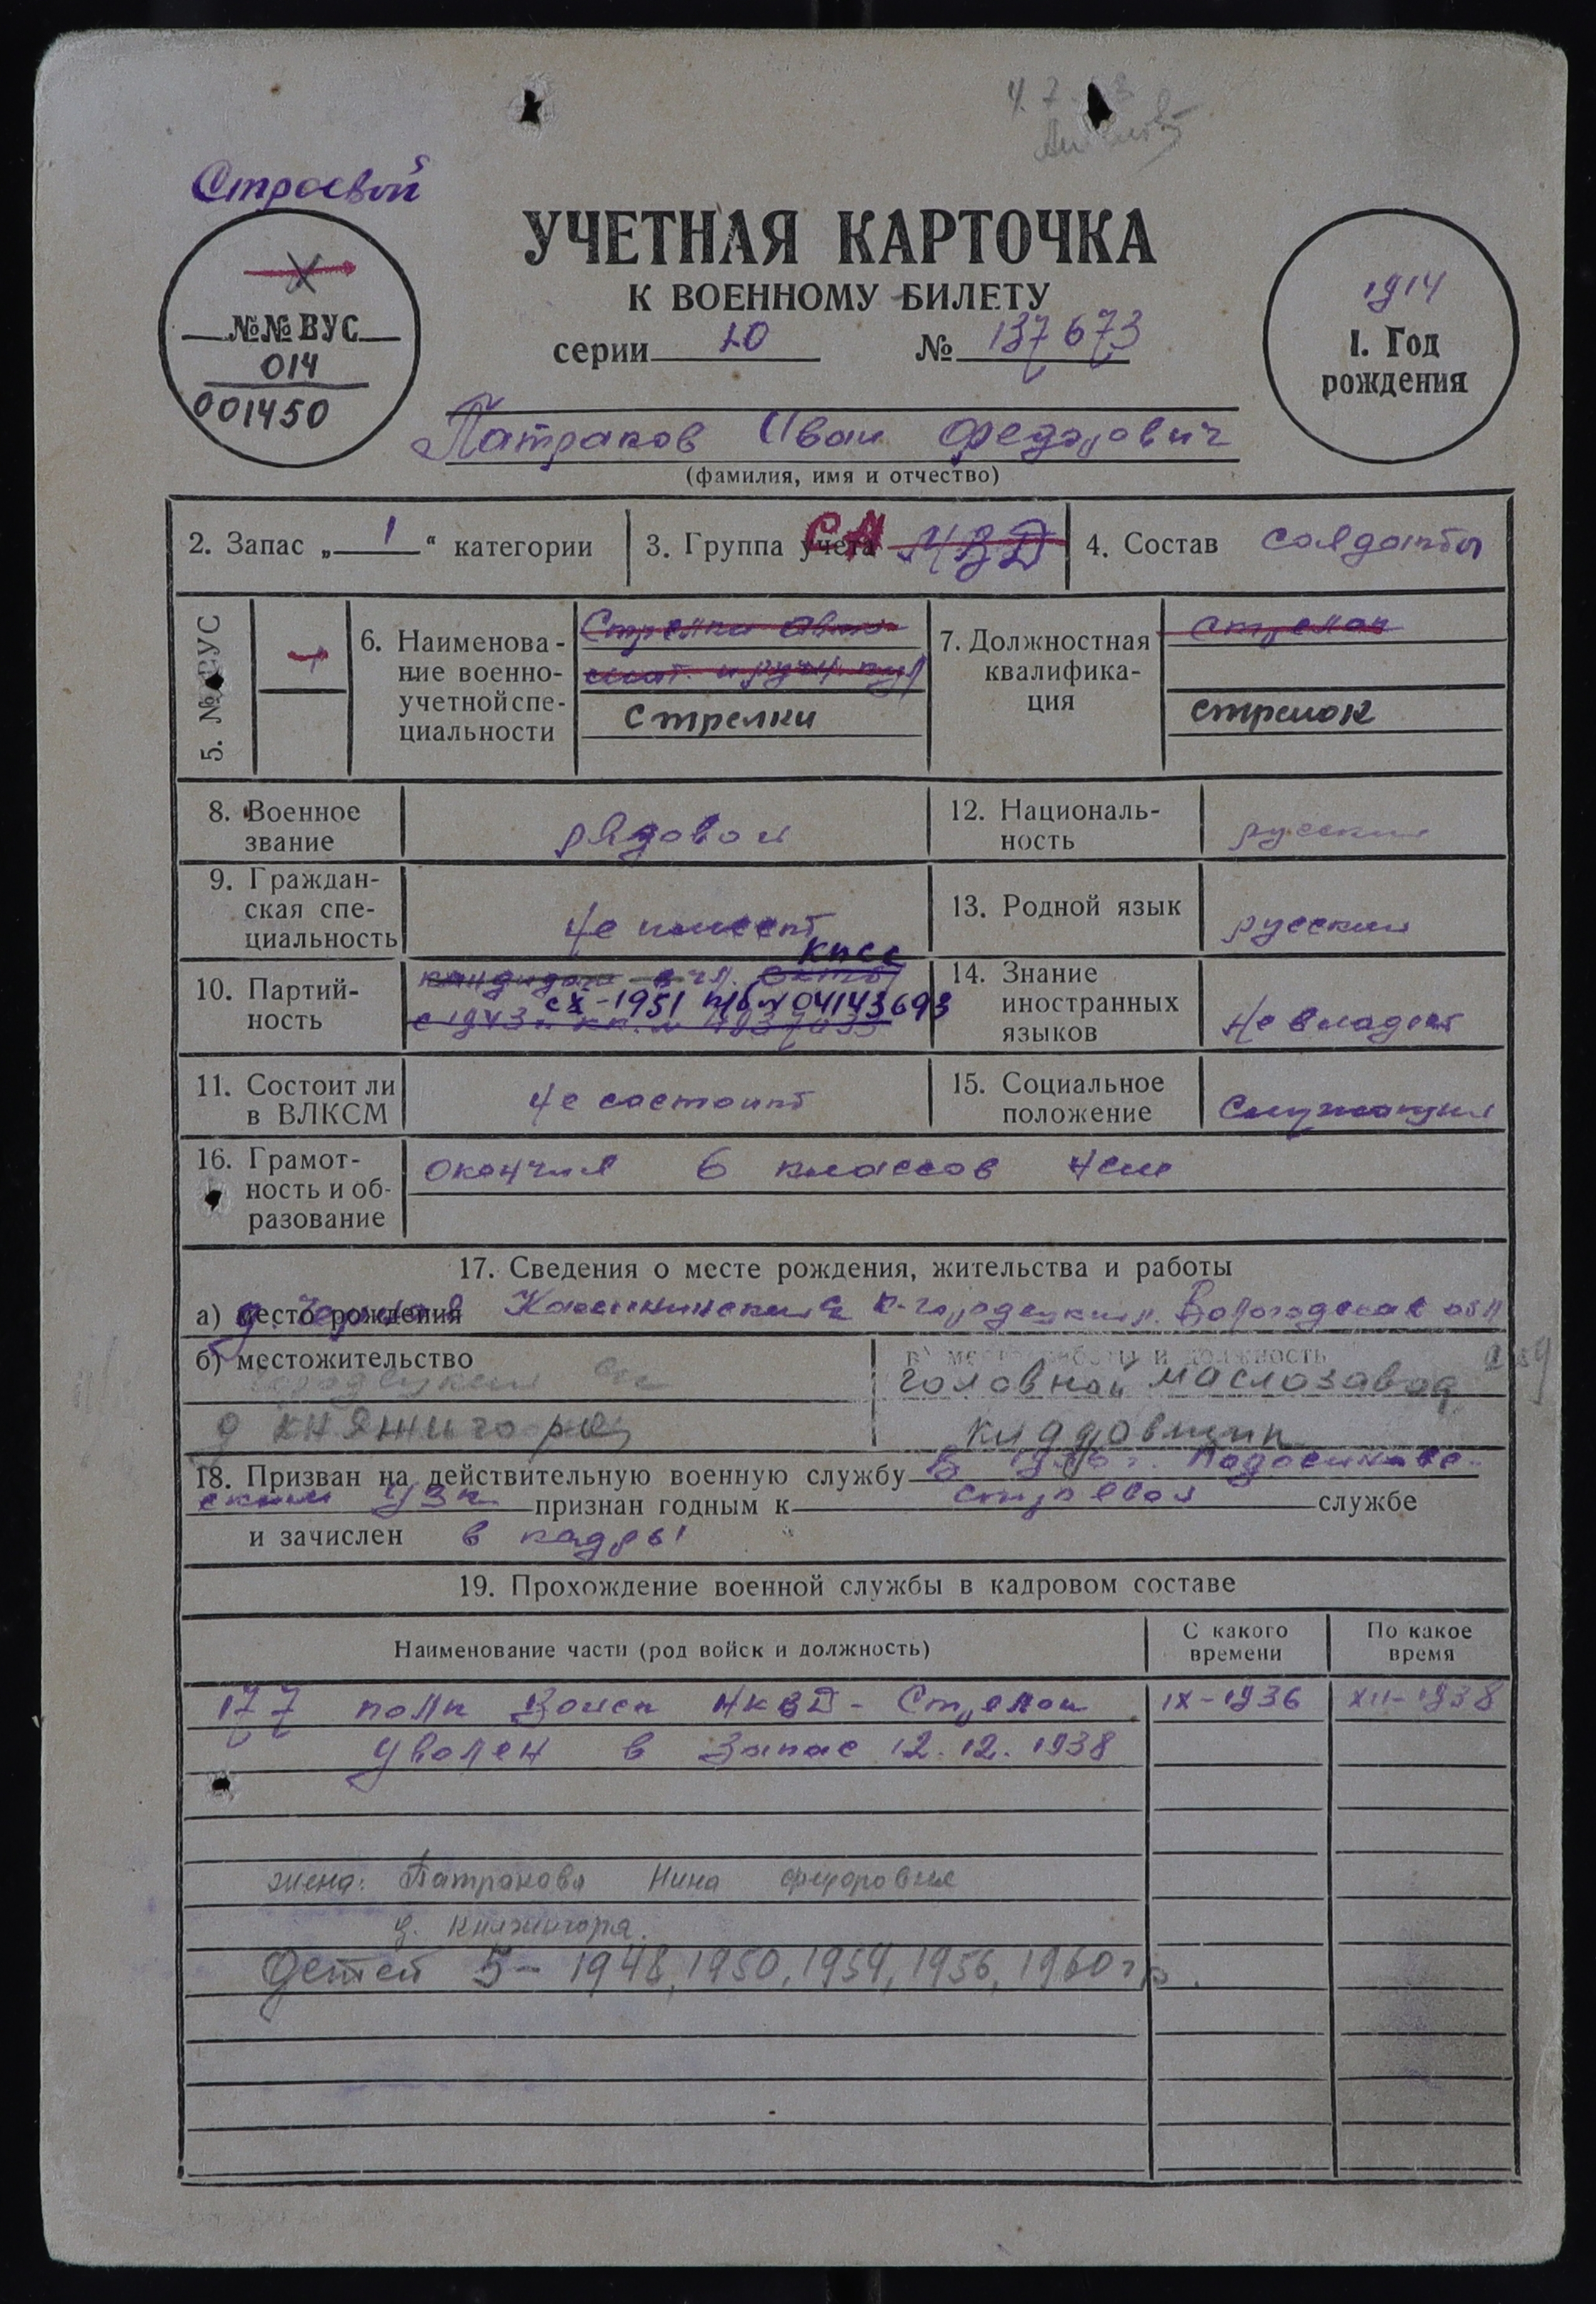 Строевой
УЧЕТНАЯ КАРТОЧКА
К ВОЕННОМУ БИЛЕТУ
серии № 137673
№№ ВУС
014
001450
1914
1. Год
рождения
Патраков Иван Федорович
(фамилия, имя и отчество)
2. Запас „ 1 “ категории
3. Группа учета СА МВД
4. Состав солдаты
5. №№ ВУС
6. Наименова-
ние военно-
учетной спе-
циальности
Стрелки
7. Должностная
квалифика-
ция
стрелок
стрелок
8. Военное
звание
рядовой
12. Националь-
ность
русский
9. Граждан-
ская спе-
циальность
не имеет
13. Родной язык
русский
10. Партий-
ность
кандидат КПСС
с X-1951 п/б № 04143693
14. Знание
иностранных
языков
не владеет
11. Состоит ли
в ВЛКСМ
не состоит
15. Социальное
положение
Служащий
16. Грамот-
ность и об-
разование
окончил 6 классов нсш
17. Сведения о месте рождения, жительства и работы
а) место рождения К-Городецкий р. Вологодская обл
б) местожительство
в) место работы и должность
головной маслозавод
д Княжигора
18. Призван на действительную военную службу в 1936 г. Подосиновс-
ким РВК признан годным к строевой службе
и зачислен в кадры
19. Прохождение военной службы в кадровом составе
Наименование части (род войск и должность)
С какого
времени
По какое
время
177 полк Войск НКВД - Стрелок IX-1936 XII-1938
Уволен в запас 12.12.1938
жена: Патракова Нина Федоровна
д. Княжигора
Детей 5 - 1948, 1950, 1954, 1956, 1960 г.р.